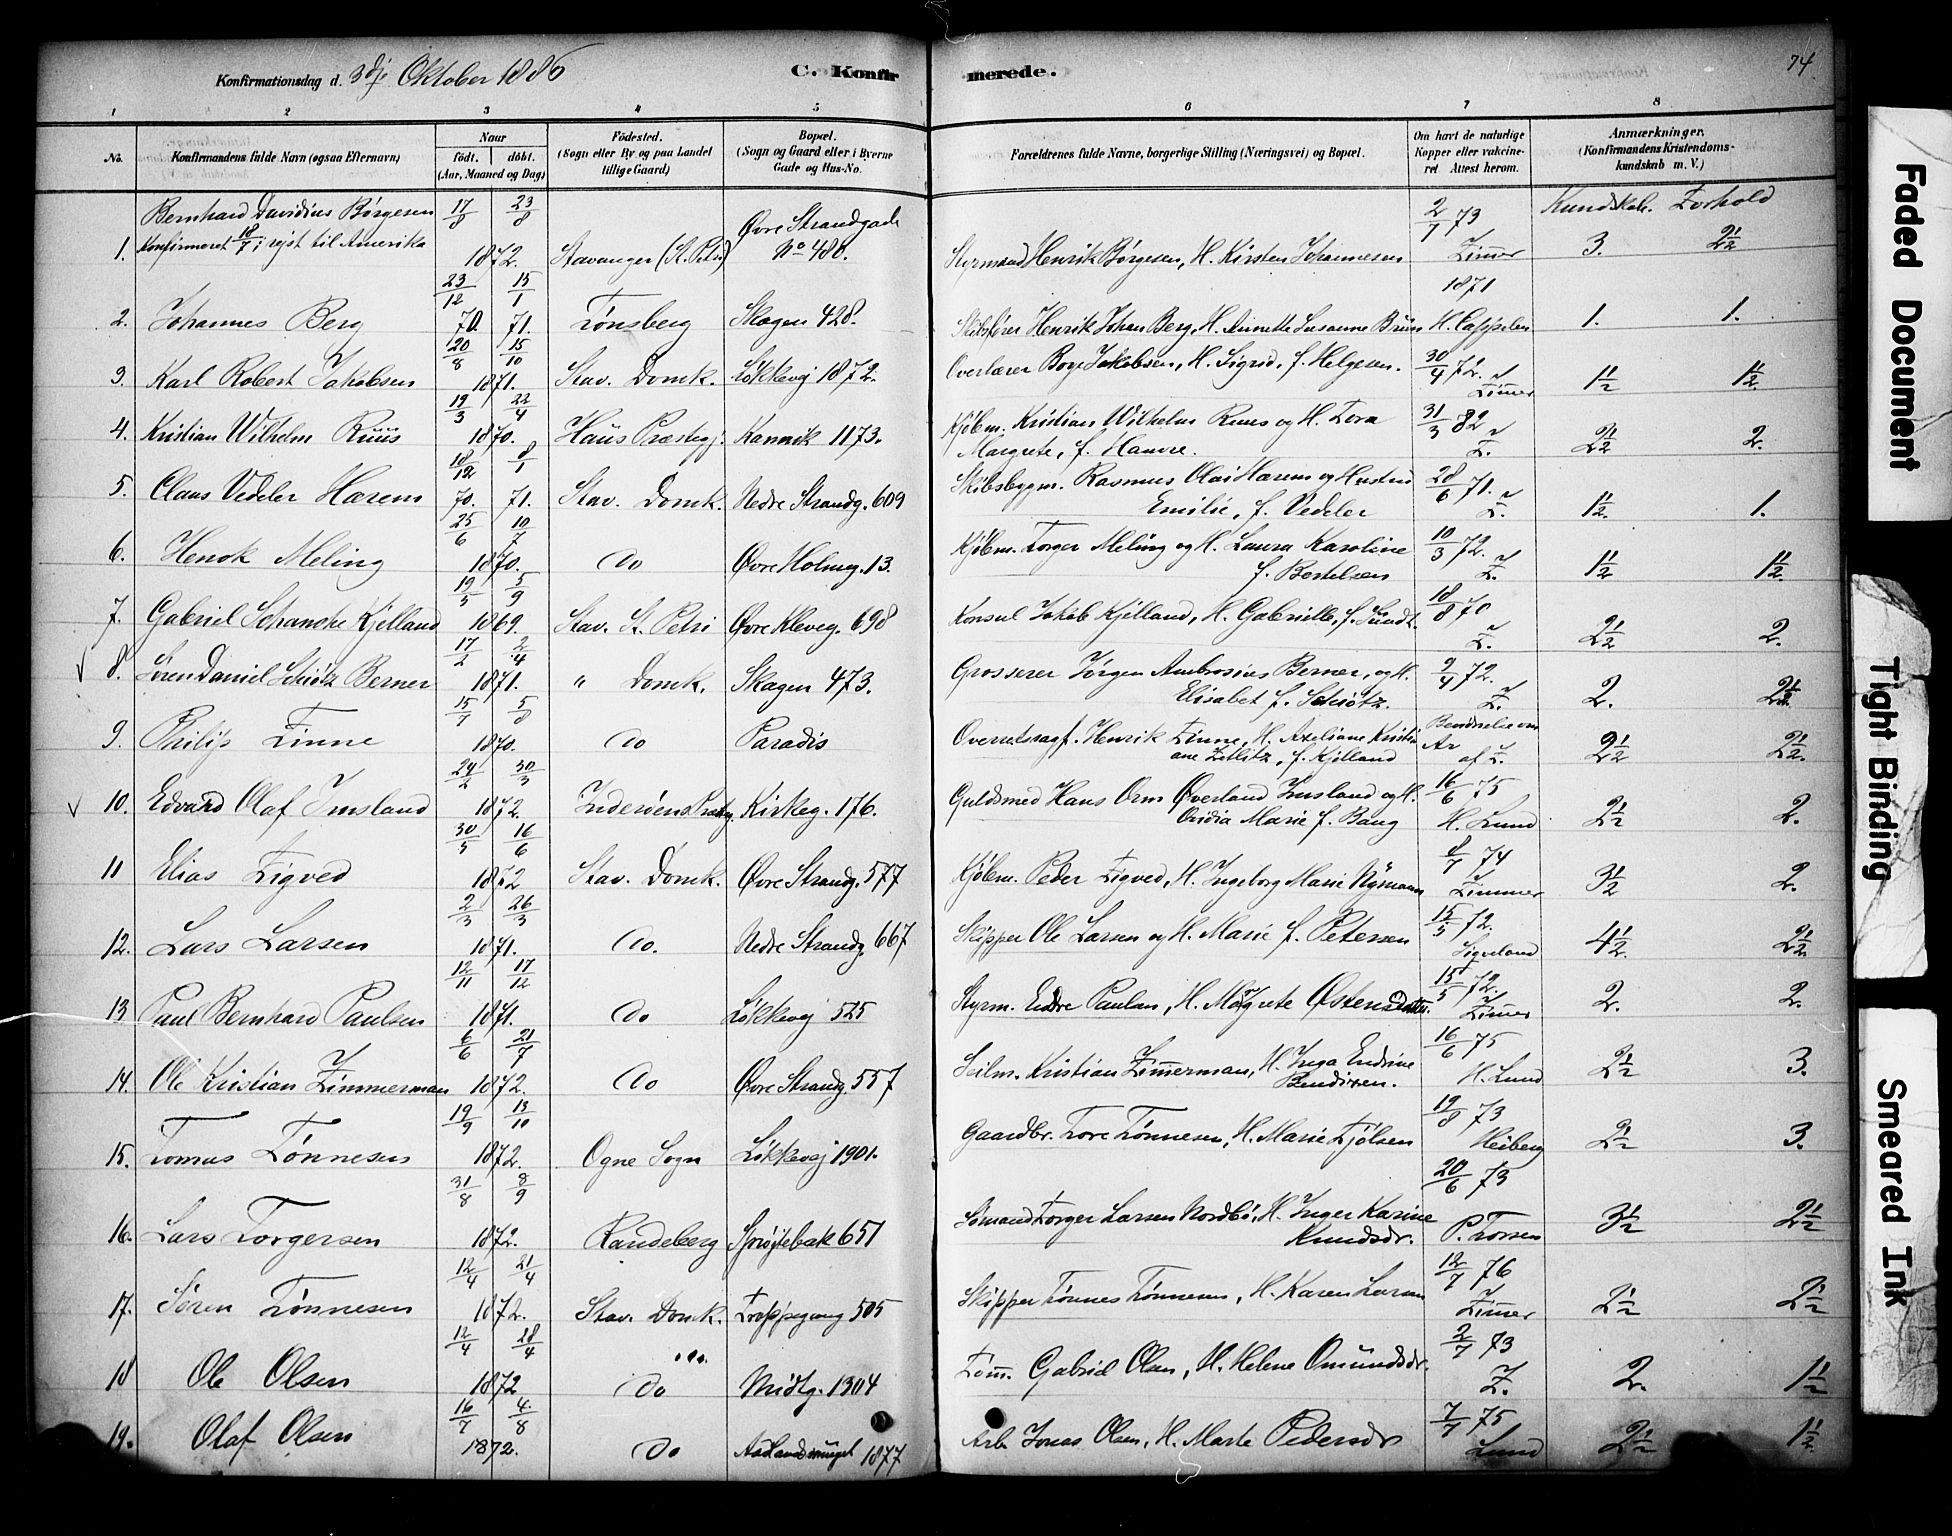 Konfirmationsdag d. 3dje Oktober 1886 C. Konfirmerede. 74
1 2 3 4 5 6 7 8
No. Konfirmandens fulde Navn (ogsaa Efternavn)
Naar født. døbt. (Aar, Maaned og Dag)
Fødested. (Sogn eller By og paa Landet tillige Gaard)
Bopæl. (Sogn og Gaard eller i Byerne Gade og Hus-No.
Forældrenes fulde Navne, borgerlige Stilling (Næringsvei) og Bopæl.
Om havt de naturlige Kopper eller vakcineret Attest herom.
Anmærkninger. (Konfirmandens Kristendomskundskab m. V.)
Kundskab. Forhold
Bernhard Davidius Børgesen 17/8 23/8 Øvre Strandgade 2/7 73
1. Konfirmeret 18/7; rejst til Amerika 1872. Stavanger (St. Petri) No 480. Styrmand Henrik Børgesen, H. Kirsten Johannesen Zimer 3. 2 1/2
2. Johannes Berg 23/12 70. 15/1 71. Tønsberg Skagen 428. Skibsfører Henrik Johan Berg, H. Annette Susanne Bruun 1871 H. Cappelen 1. 1.
3. Karl Robert Jakobsen 20/8 15/10 1871. Stav. Domk. Løkkevej 1872. Overlærer Boye Jakobsen, H. Sigrid, f. Helgesen. 30/4 72. Zimer 1 1/2 1 1/2.
4. Kristian Wilhelm Ruus 19/3 22/4 1870. Haus Præstegj. Kannik 1173. Kjøbm. Kristian Wilhelm Ruus og H. Tora
Margrete, f. Hamre. 31/3 82 Z. 2 1/2 2.
5. Claus Vedeler Harem 18/12 70. 8/1 71. Stav. Domk. Nedre Strandg. 609 Skibsbygm. Rasmus Olai Harem og Hustru
Emilie, f. Vedeler 28/6 71. Z. 1 1/2. 1.
6. Henok Meling 25/6 10/7 1870. do Øvre Holmeg. 13. Kjøbm. Torger Meling og H. Laura Karoline
f. Bertelsen 10/3 72. Z. 1 1/2 1 1/2.
7. Gabriel Schanche Kjelland 19/5 5/9 1869. Stav. St. Petri Øvre Kleveg. 698 Konsul Jakob Kjelland, H. Gabrielle, f. Sundt. 18/8 70 Z. 2 1/2 2.
8. Søren Daniel Schiøtz Berner 17/2 2/4 1871. " Domk. Skagen 473. Grosserer Jørgen Ambrosius Berner, og H.
Elisabet f. Schiøtz. 9/4 72. Z. 2. 2 1/2.
9. Philip Zinne 15/7 5/8 1870. do Paradis Overretssagf. Henrik Finne, H. Axeliane Kristi
ane Zetlitz, f. Kjelland af Z. 2 1/2 2 1/2.
10. Edvard Olaf Imsland 24/2 30/3 1872. Inderøens Præstg. Kirkeg. 176. Guldsmed Hans Orm Øverland Imsland og H.
Ovidia Marie f. Baug 16/6 75 H. Lund 2 1/2 2.
11 Elias Tigved 30/5 16/6 1872 Stav. Domk. Øvre Strandg. 577 Kjøbm. Peder Tigved, H. Ingeborg Marie Nymann 8/7 74 Zimmer 3 1/2 2.
12. Lars Larsen 2/3 26/3 1871. do. Nedre Strandg. 667 Skipper Ole Larsen og H. Marie f. Petersen 15/5 72. Sigveland 4 1/2. 2 1/2.
13 Paul Bernhard Paulsen 12/11 17/12 1871. do Løkkevej 525 Styrm. Endre Paulsen, H. Margrete Østensdatter. 15/5 72. Zimer 2. 2.
14. Ole Kristian Zimmerman 6/6 21/7 1872. do Øvre Strandg. 557 Seilm. Kristian Zimmerman, H. Inga Endrine
Bendixen. 16/6 75 H. Lund 2 1/2 3.
15. Tomas Tønnesen 19/9 13/10 1872. Ogne Sogn Løkkevej 1901. Gaardbr. Tore Tønnesen, H. Marie Fjølsen 19/8 73 Heiberg 2 1/2 3.
16. Lars Torgersen 31/8 8/9 1872. Randeberg Sprøitebak 651 Sømand Torger Larsen Nordbø, H. Inger Karine
Knudsdr. 20/6 73 P. Torsen 3 1/2 2 1/2
17. Søren Tønnesen 12/4 21/4 1872. Stav. Domk. Trappegang 505 Skipper Tønnes Tønnesen, H. Karen Larsen 12/7 76 Zimer 2 1/2 2 1/2
18 Ole Olsen 12/4 28/4 1872 do Midtg. 1304 Tøm. Gabriel Olsen, H. Helene Omundsdr. 2/7 73 Z. 2. 1 1/2
19. Olaf Olsen 16/7 4/8 1872. do 1877 Arb. Jonas Olsen, H. Marte Pedersdr 7/7 75 Lund 2 1/2 1 1/2.
Faded Document
Tight Binding
Smeared Ink